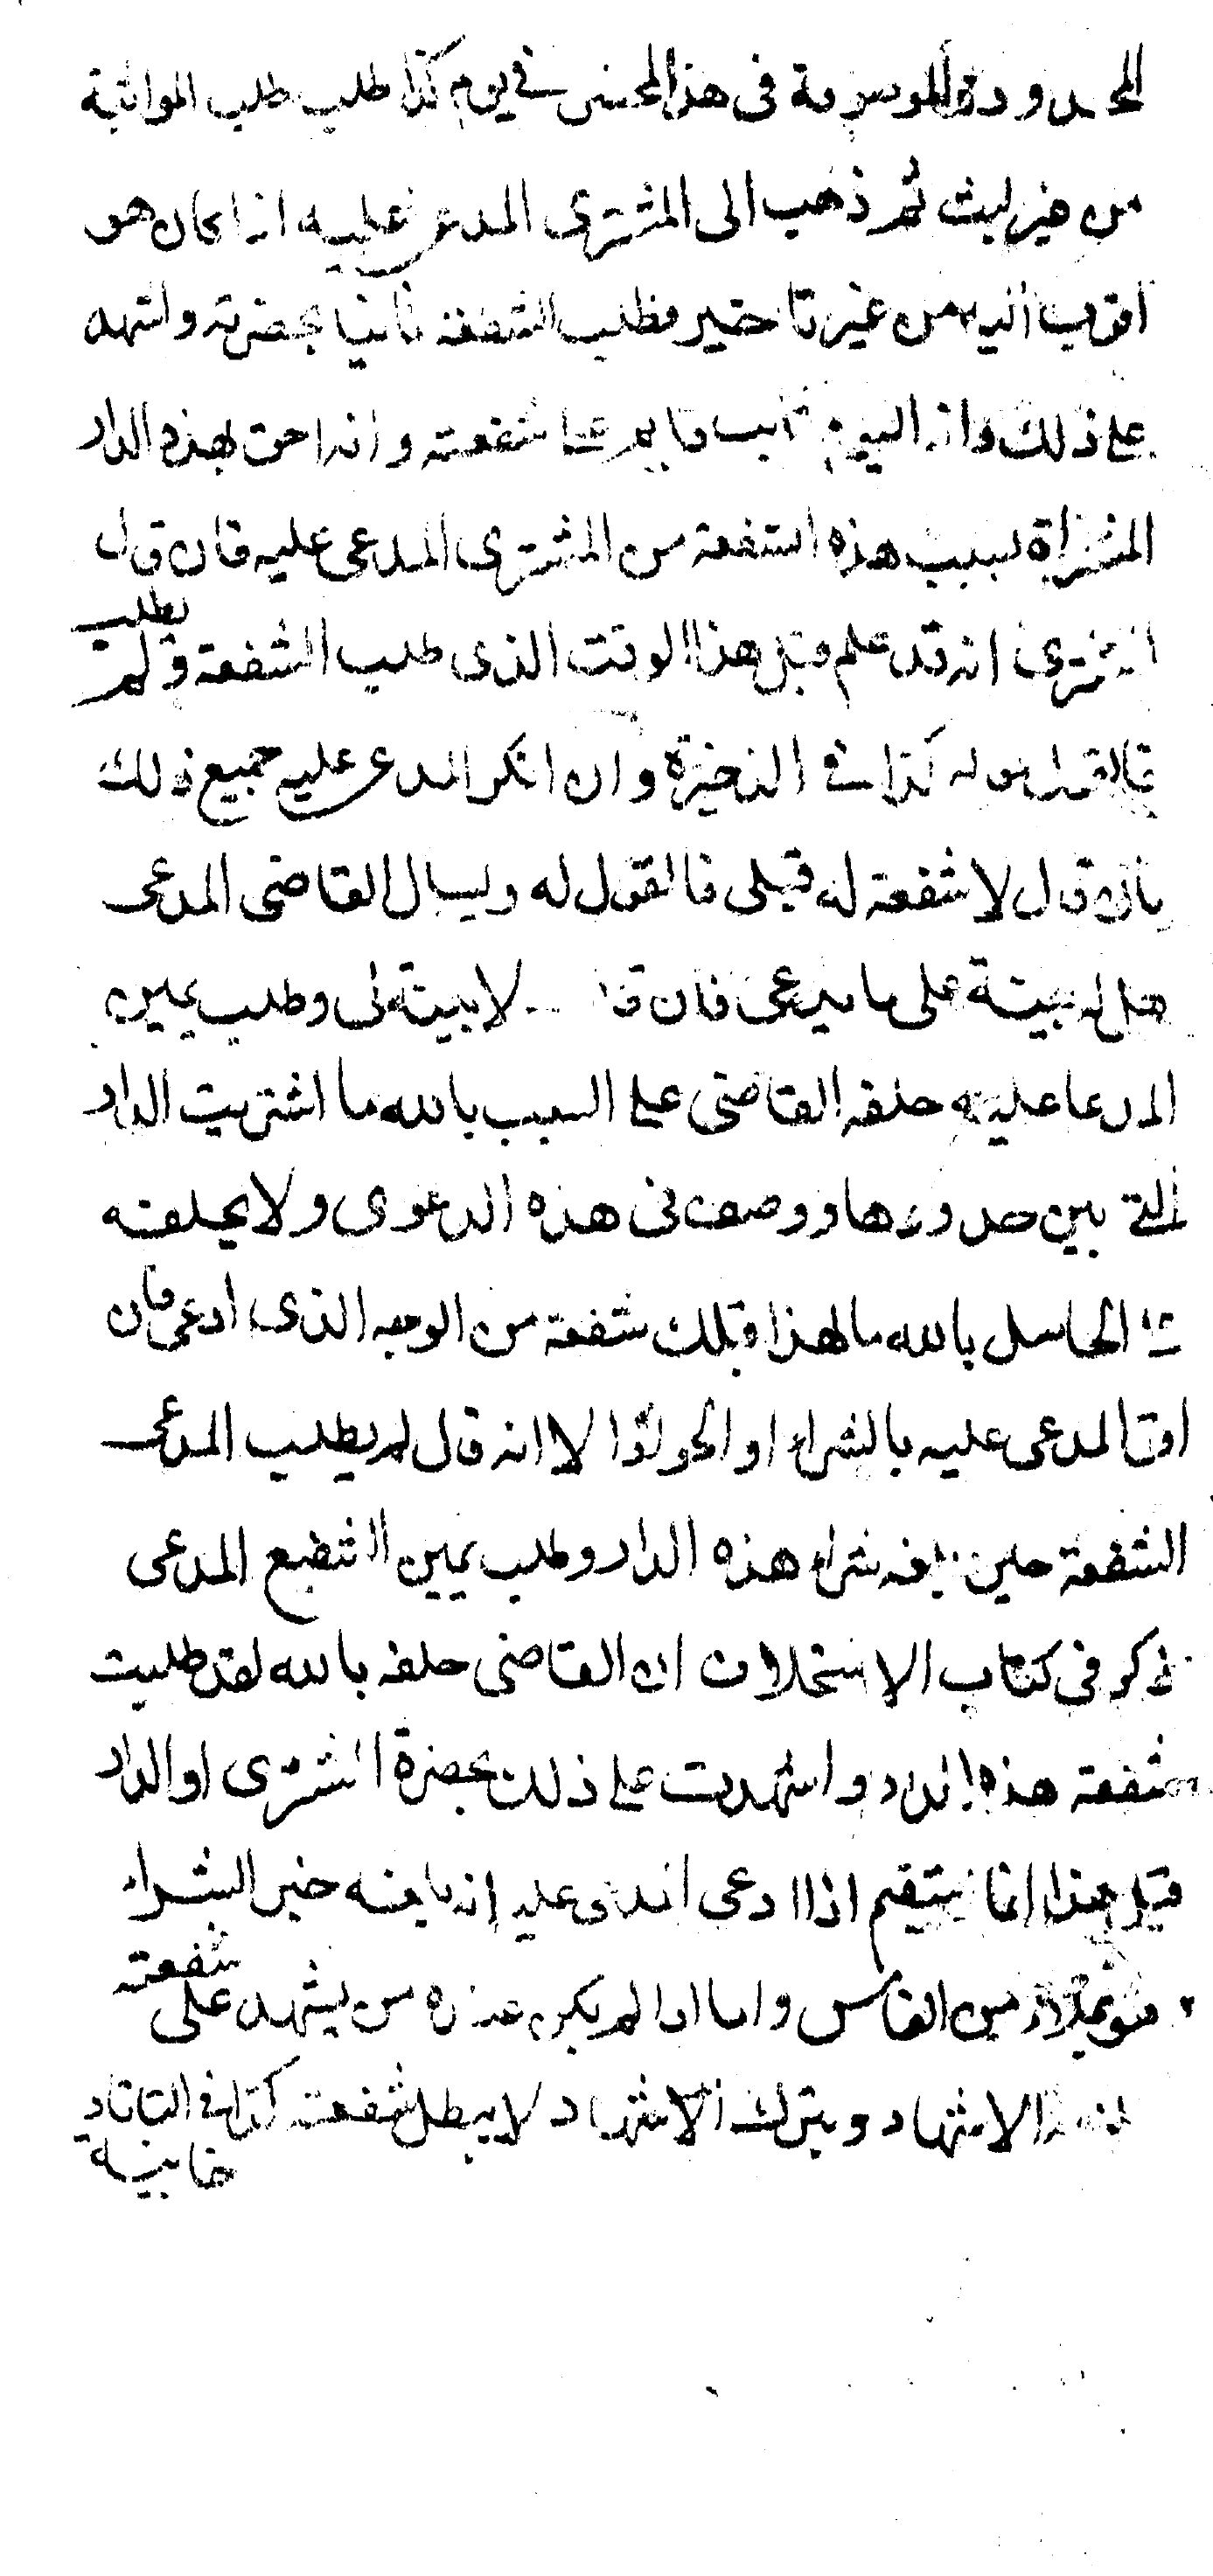 المحدودة الموسومة فى هذا المحضر فى يوم كذا طلب طلب المواثبة
من غير لبث ثم ذهب الى المشترى المدعى عليه اذا كان هو
اقرب اليه من غير تاخير وطلب الشفعة ثانيا بحضرته واشهد
على ذلك وانه اليوم على شفعته وانه احق بهذه الدار
المشتراة بسبب هذه الشفعة من المشترى المدعى عليه فان قال
المشترى انه قد علم قبل هذا الوقت الذى طلب الشفعة ولم يطلب
فالقول قوله كذا فى الذخيرة وان انكر المدعى عليه جميع ذلك
بان قال لا شفعة له قبلى فالقول له ويسال القاضى المدعى
هل له بينة على ما يدعى فان قال لا بينة لى وطلب يمين
المدعا عليه حلفه القاضى على السبب بالله ما اشتريت الدار
التى بين حدودها ووصف فى هذه الدعوى ولا يحلفه
على الحاصل بالله ما لهذا قبلك شفعة من الوجه الذى ادعى فان
اقر المدعى عليه بالشراء او الجوار الا انه قال لم يطلب المدعى
الشفعة حين بلغه شراء هذه الدار وطلب يمين الشفيع المدعى
ذكر فى كتاب الاستحلاف ان القاضى حلفه بالله لقد طلبت
شفعة هذه الدار واشهدت على ذلك بحضرة المشترى او الدار
قيل هذا انما يستقيم اذا ادعى المدعى عليه انه بلغه خبر الشراء
من الناس واما اذا لم يكن عنده من يشهد على شفعته
الاشهاد وبترك الاشهاد لا يبطل شفعته كذا فى التاتار
خانية